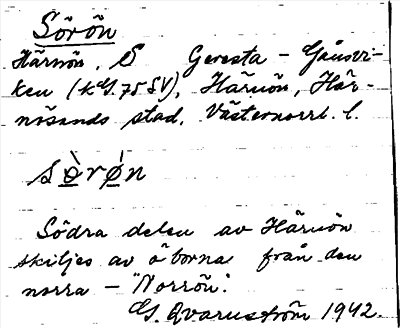 Sörön
Härnön, S Geresta – Gånsvi-
ken (kG. 75 SV), Härnön, Här-
nösands stad, Västernorrl. l.
sòrǿn
Södra delen av Härnön
skiljes av öborna från den
norra – "Norrön".
G. Qvarnström 1942.